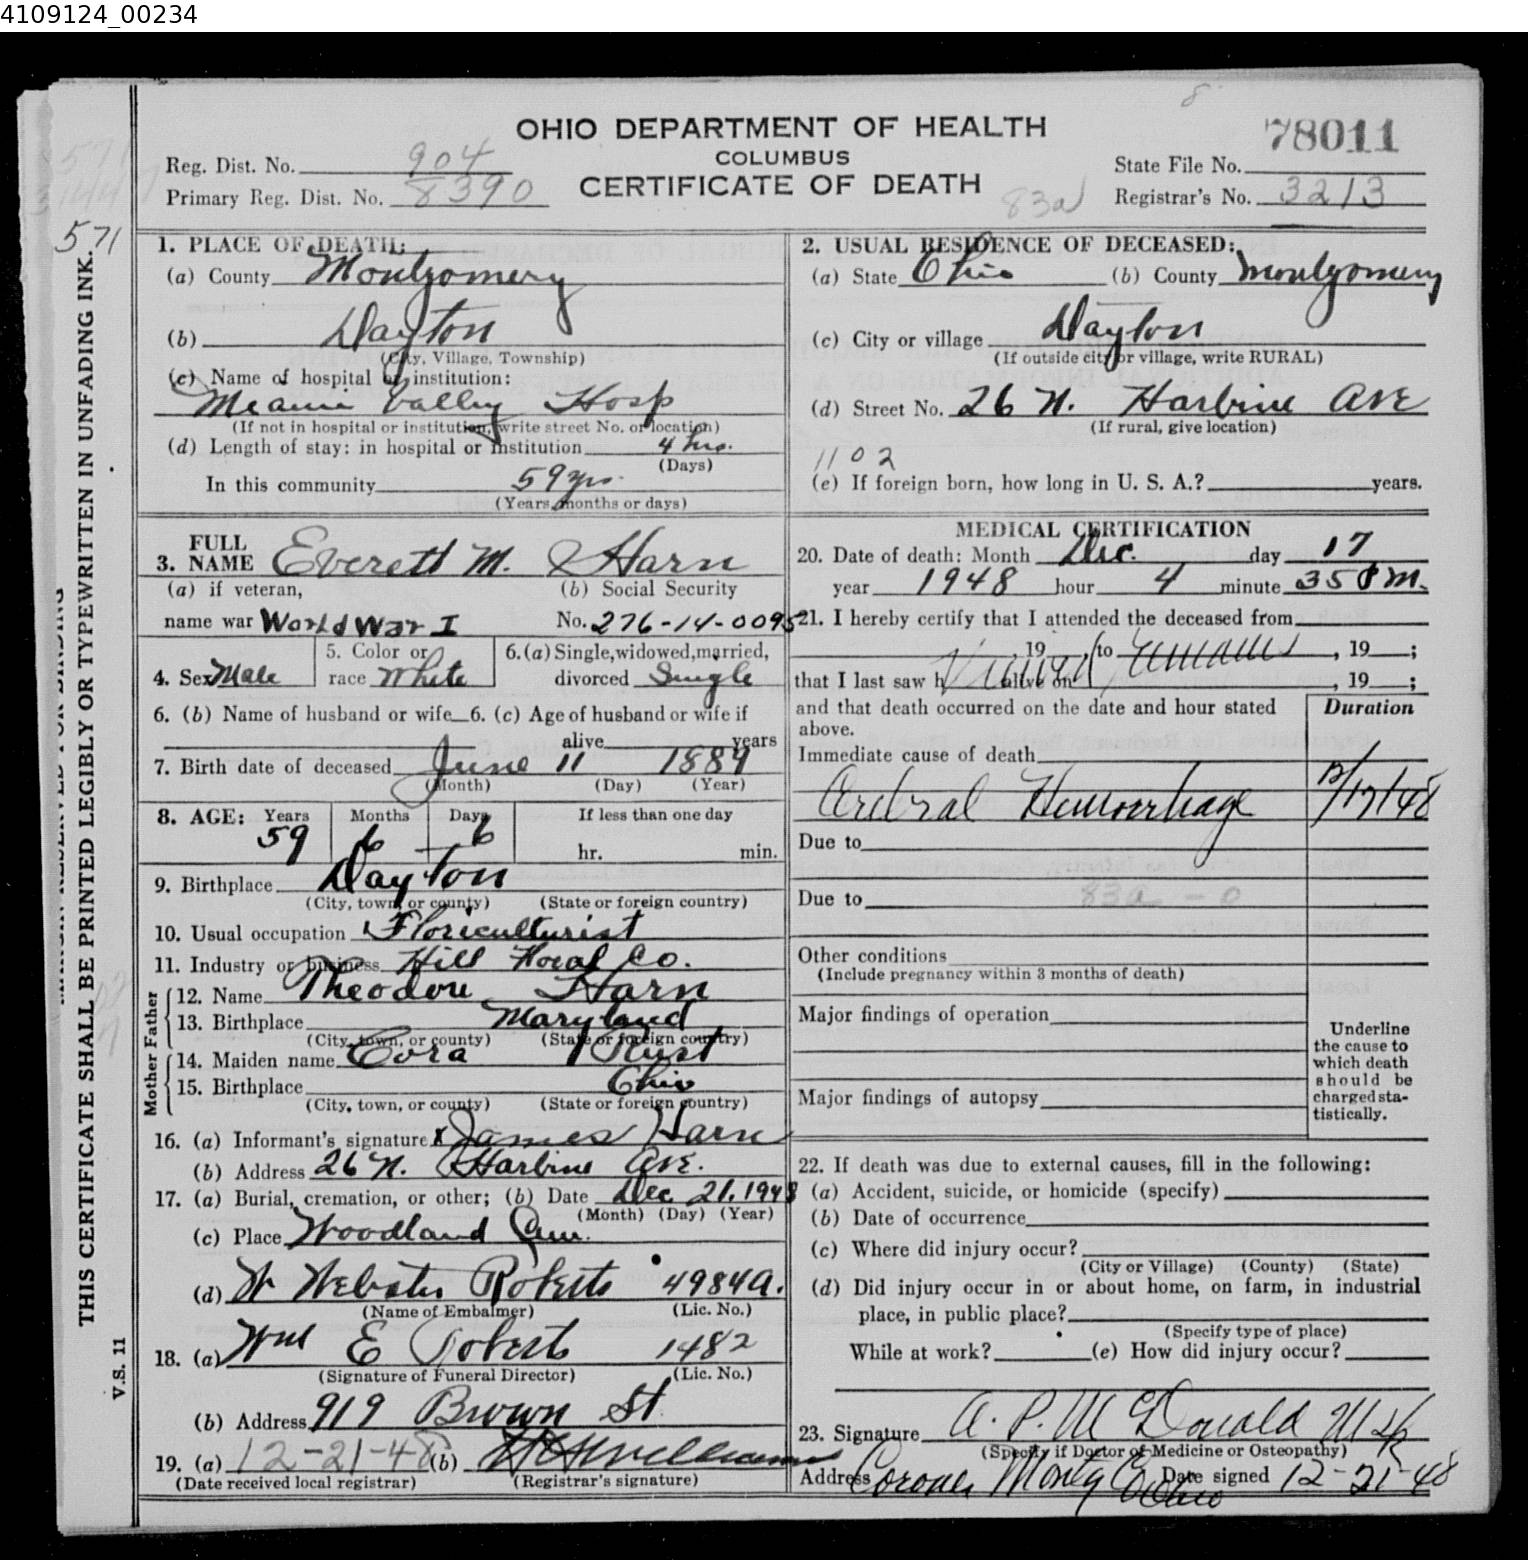 4109124_00234
8
OHIO DEPARTMENT OF HEALTH
COLUMBUS
CERTIFICATE OF DEATH
Reg. Dist. No. 904
Primary Reg. Dist. No. 8390
83a
78011
State File No.
Registrar's No. 3213
571
THIS CERTIFICATE SHALL BE PRINTED LEGIBLY OR TYPEWRITTEN IN UNFADING INK.
V.S. 11
1. PLACE OF DEATH:
(a) County Montgomery
(b) Dayton
(City, Village, Township)
(c) Name of hospital or institution:
Meamie Valley Hosp
(If not in hospital or institution, write street No. or location)
(d) Length of stay: in hospital or institution 4 hrs.
(Days)
In this community 59 yrs.
(Years, months or days)
2. USUAL RESIDENCE OF DECEASED:
(a) State Ohio (b) County Montgomery
(c) City or village Dayton
(If outside city or village, write RURAL)
(d) Street No. 26 N. Harbine Ave
(If rural, give location)
1102
(e) If foreign born, how long in U. S. A.? years.
3. FULL NAME Everett M. Harn
(a) if veteran,
name war World War I
(b) Social Security
No. 276-14-0095
4. Sex Male
5. Color or
race White
6. (a) Single, widowed, married,
divorced Single
6. (b) Name of husband or wife 6. (c) Age of husband or wife if
alive years
7. Birth date of deceased June 11 1889
(Month) (Day) (Year)
8. AGE: Years Months Days If less than one day
59 6 6 hr. min.
9. Birthplace Dayton
(City, town, or county) (State or foreign country)
10. Usual occupation Floriculturist
11. Industry or business Hill Floral Co.
Father
12. Name Theodore Harn
13. Birthplace Maryland
(City, town, or county) (State or foreign country)
Mother
14. Maiden name Cora Rust
15. Birthplace Ohio
(City, town, or county) (State or foreign country)
16. (a) Informant's signature x James Harn
(b) Address 26 N. Harbine Ave.
17. (a) Burial, cremation, or other; (b) Date Dec 21, 1948
(Month) (Day) (Year)
(c) Place Woodland Cem.
(d) W Webster Roberts 4984A.
(Name of Embalmer) (Lic. No.)
18. (a) Wm E Roberts 1482
(Signature of Funeral Director) (Lic. No.)
(b) Address 919 Brown St
19. (a) 12-21-48 (b)
(Date received local registrar) (Registrar's signature)
MEDICAL CERTIFICATION
20. Date of death: Month Dec. day 17
year 1948 hour 4 minute 35 P M.
21. I hereby certify that I attended the deceased from
, 19 , to , 19 ;
Viewed remains
that I last saw h alive on , 19 ;
and that death occurred on the date and hour stated
above.
Duration
Immediate cause of death
Cerebral Hemorrhage 12/17/48
Due to
Due to 83a - 0
Other conditions
(Include pregnancy within 3 months of death)
Major findings of operation
Major findings of autopsy
Underline
the cause to
which death
should be
charged sta-
tistically.
22. If death was due to external causes, fill in the following:
(a) Accident, suicide, or homicide (specify)
(b) Date of occurrence
(c) Where did injury occur?
(City or Village) (County) (State)
(d) Did injury occur in or about home, on farm, in industrial
place, in public place?
(Specify type of place)
While at work? (e) How did injury occur?
23. Signature A. P. McDonald
(Specify if Doctor of Medicine or Osteopathy)
Address Coroner Montg Co Ohio Date signed 12-21-48